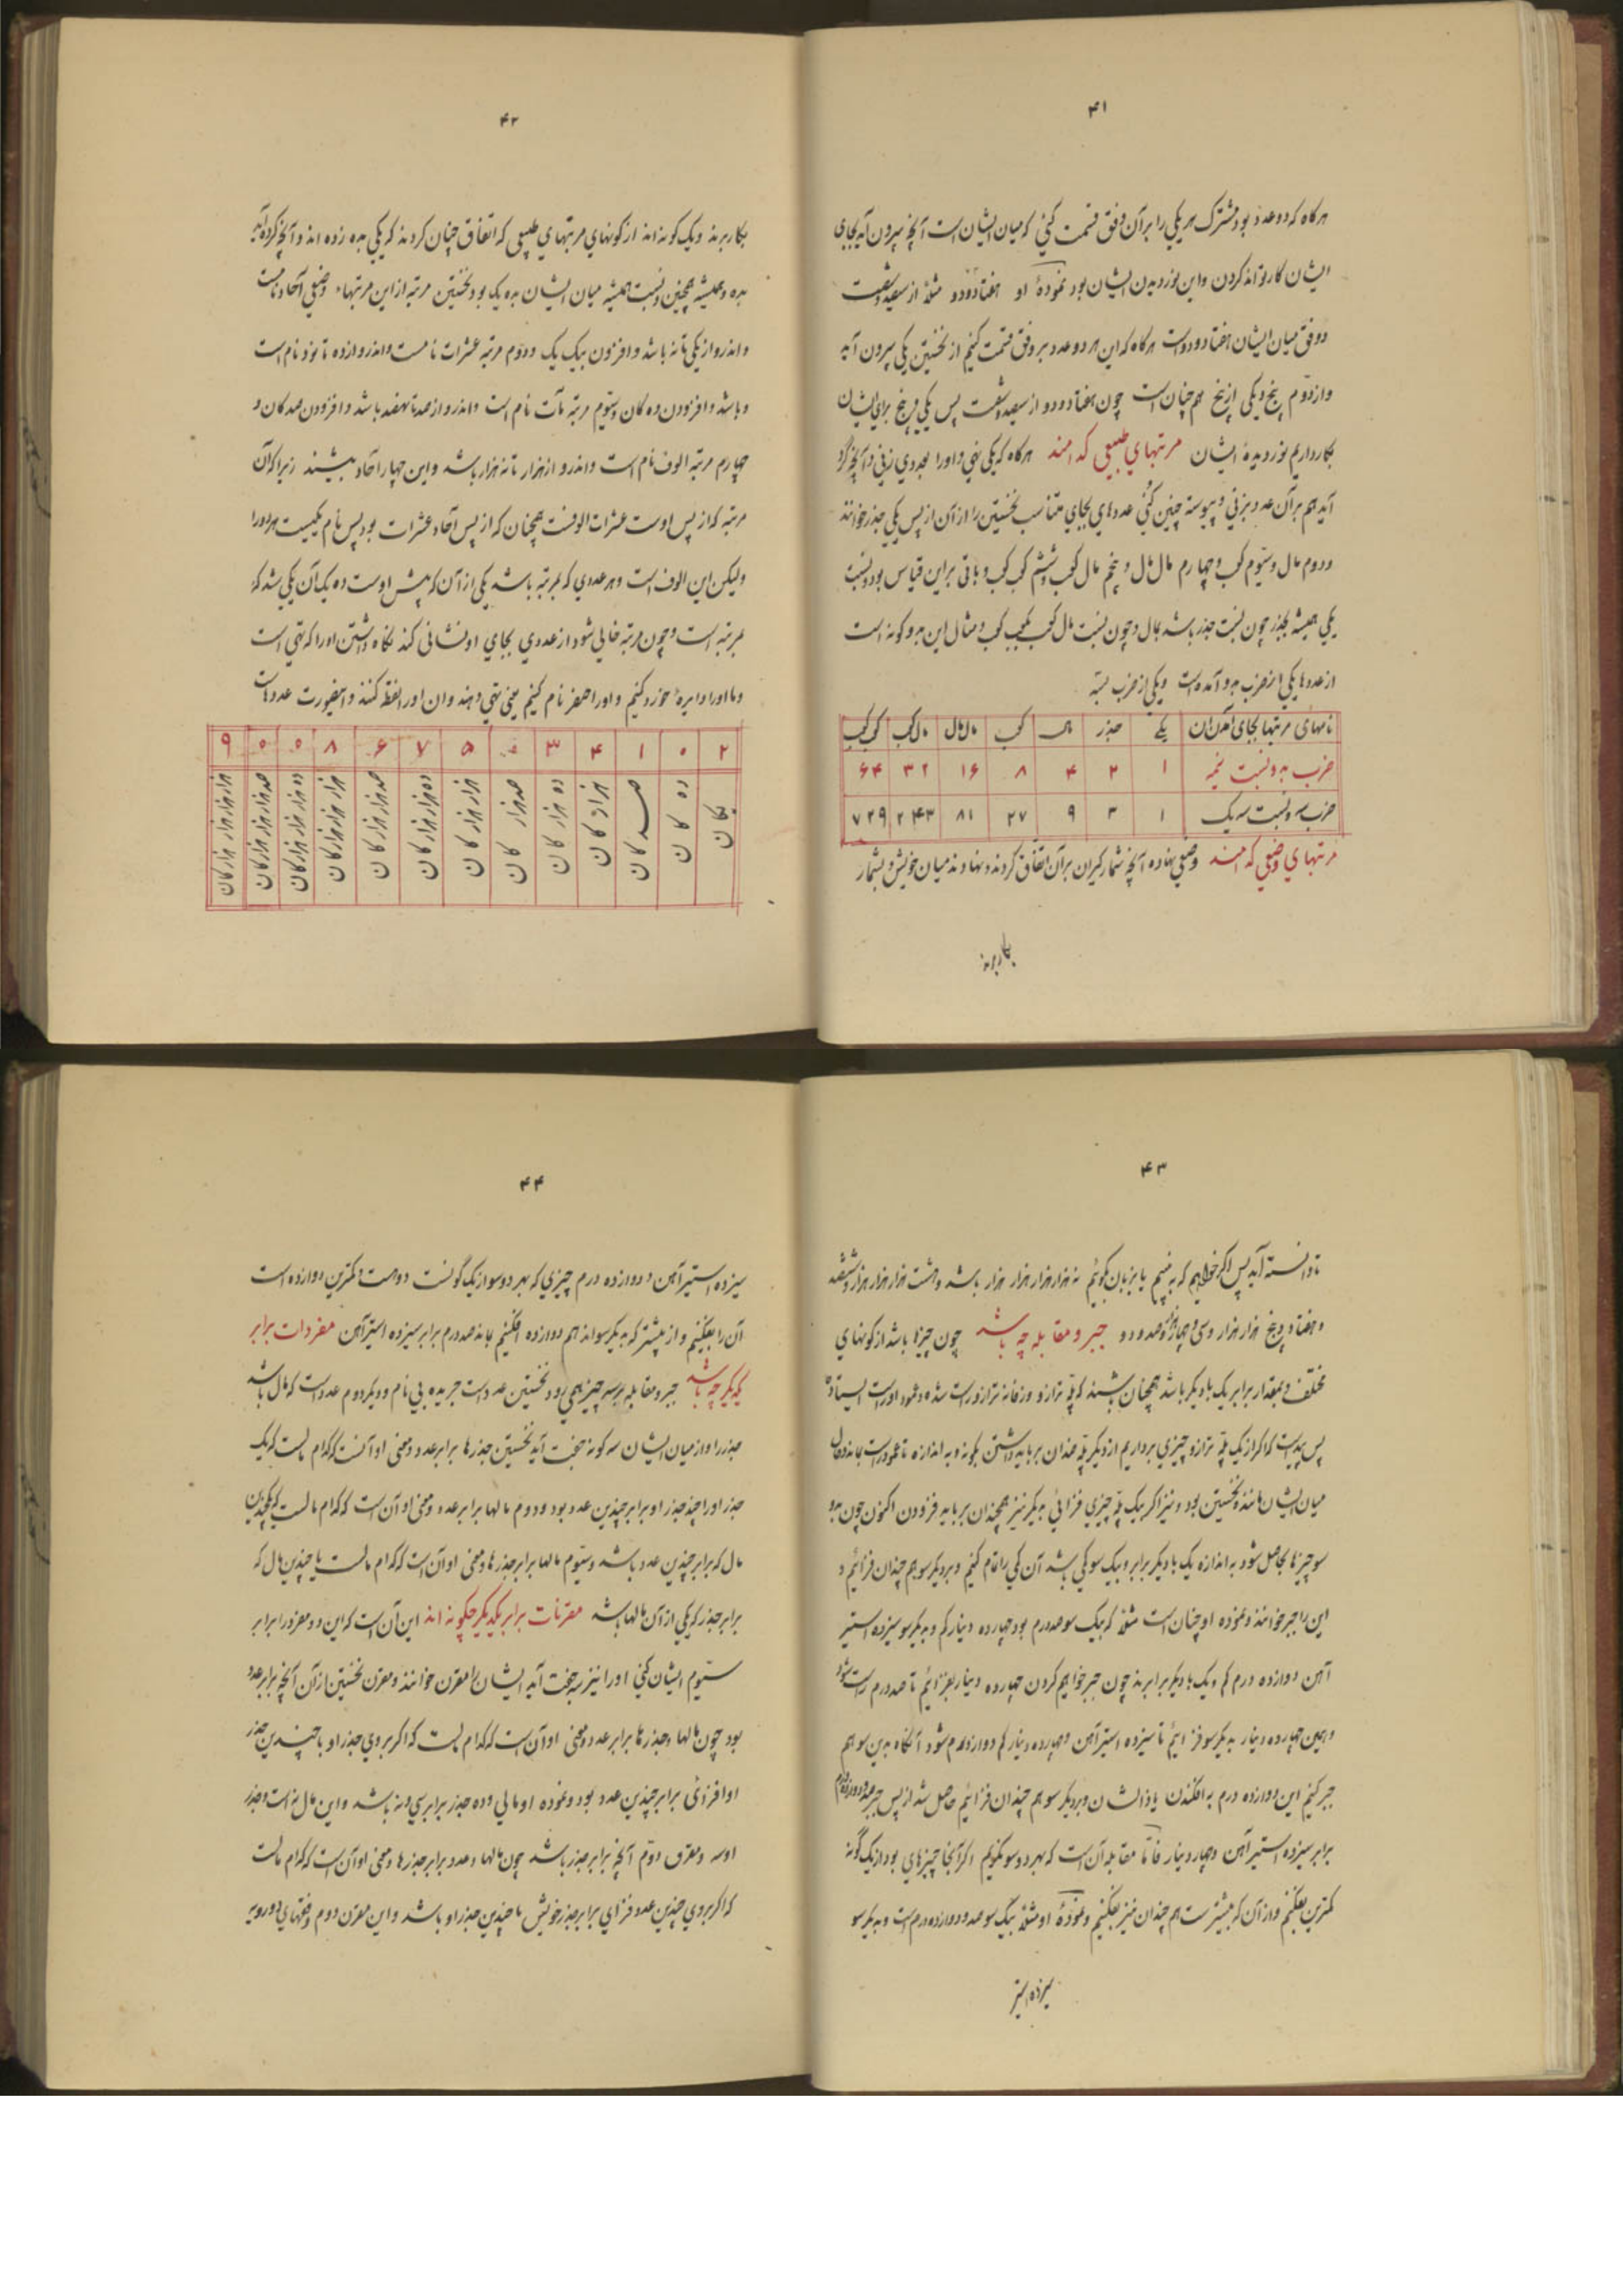 ۴۱
هرگاه که دو عدد بود مشترک هر یکی را بر آن وفق قسمت کنی که میان ایشان است آنچه بیرون آید بجای
ایشان کار تواند کردن و این نوردیدن ایشان بود نمودهٔ او هفتاد و دو مثلا از سیصد و شصت
و وفق میان ایشان هفتاد و دو است هرگاه که این هر دو عدد بر وفق قسمت کنیم از نخستین یکی بیرون آید
و از دوّم پنج و یکی از پنج هم چنان است چون هفتاد و دو از سیصد و شصت پس یکی و پنج برای ایشان
بکار داریم نوردیدهٔ ایشان مرتبهای طبیعی کدامند هرگاه که یکی نهی و او را بعددی زنی و آنچه گرد
آید هم بر آن عدد بزنی و پیوسته چنین کنی عددهای بجای متناسب نخستین را از آن از پس یکی جذر خوانند
و دوم مال و سیّوم کعب و چهارم مال مال و پنجم مال کعب و ششم کعب کعب و باقی براین قیاس بود و نسبت
یکی همیشه بجذر چون نسبت جذر باشد بمال و چون نسبت مال کعب بکعب کعب و مثال این بدو گونه است
از عددها یکی از ضرب بدو آمده است و یکی از ضرب بسه
نامهای مرتبها بجای آمدن آن یکی جذر مال کعب مال مال مال کعب کعب کعب
ضرب بدو نسبت نیمه ۱ ۲ ۴ ۸ ۱۶ ۳۲ ۶۴
ضرب بسه و نسبت سه یک ۱ ۳ ۹ ۲۷ ۸۱ ۲۴۳ ۷۲۹
مرتبهای وضعی کدامند وضعی نهاده آنچه شمارگیران بر آن اتفاق کردند و نهادند میان خویش و بشمار
بکار برند
۴۲
بکار برند و یک گونه اند از گونهای مرتبهای طبیعی که اتفاق چنان کردند که یکی بده زده اند و آنچه گرد آید
بده و همیشه همچنین و نسبت همیشه میان ایشان بده یک بود نخستین مرتبه از این مرتبهاء وضعی آحاد نامست
و اندرو از یکی تا نه باشد و افزون بیک یک و دوّم مرتبه عشرات نامست و اندرو از ده تا نود نام است
و باشد و افزودن ده گان و سیّوم مرتبه مآت نام است و اندرو از صد تا نهصد باشد و افزودن صد گان و
چهارم مرتبه الوف نام است و اندرو از هزار تا نه هزار باشد و این چهار آحاد بیشند زیرا که آن
مرتبه که از پس اوست عشرات الوفست همچنان که از پس آحاد عشرات بود پس نام یکیست هر دو را
ولیکن این الوف است و هر عددی که بمرتبه باشد یکی از آن که پیش اوست ده یک آن یکی شد که
بمرتبه است و چون مرتبه خالی شود از عددی بجای او نشانی کند نگاه داشتن او را که تهی است
و ما او را دایرهٔ خورد کنیم و او را صفر نام کنیم یعنی تهی و هند و ان او را نقطه کنند و اینصورت عددهاست
۲ ۰ ۱ ۴ ۳ ۰ ۵ ۷ ۶ ۸ ۵ ۵ ۹
یکان
ده کان
صد کان
هزار کان
ده هزار کان
صد هزار کان
هزار هزار کان
ده هزار هزار کان
صد هزار هزار کان
هزار هزار هزار کان
ده هزار هزار هزار کان
صد هزار هزار هزار کان
هزار هزار هزار هزار کان
۴۳
تا دانسته آید پس اگر خواهیم که بنهیم یا بزبان بگوئیم نه هزار هزار هزار هزار باشد و هشت هزار هزار هزار و ششصد
و هفتاد و پنج هزار هزار و سی و چهار هزار و صد و دو جبر و مقابله چه باشد چون چیزها باشد از گونهای
مختلف و بمقدار برابر یک با دیگر باشد همچنان باشند که پلّهٔ ترازو و زفانهٔ ترازو راست شده و عمود او راست ایستاده
پس پیداست که اگر از یک پلّه ترازو چیزی برداریم از دیگر پلّه چندان بر باید داشتن بگونه و به اندازه تا عمود راست بماند و حال
میان ایشان مانندهٔ نخستین بود و نیز اگر بیک پلّه چیزی فزائی بدیگر نیز همچندان بر باید فزودن اکنون چون بدو
سو چیزها حاصل شود به اندازه یک با دیگر برابر و بیک سو کمی باشد آن کمی را تمام کنیم و بر دیگر سو هم چندان فزائیم و
این را جبر خوانند و نموده او چنان است مثلا که بیک سو صد درم بود چهارده دینار کم و بدیگر سو سیزده استیر
آهن دوازده درم کم و یک با دیگر برابرند چون جبر خواهیم کردن چهارده دینار بفزائیم تا صد درم راست شود
و همین چهارده دینار بدیگر سو فزائیم تا سیزده استیر آهن و چهارده دینار کم دوازده درم شود آنگاه بدین سو هم
جبر کنیم این دوازده درم به افکندن یاد ایشان و بر دیگر سو هم چندان فزائیم حاصل شد از پس جبر صد و دوازده درم
برابر سیزده استیر آهن و چهارده دینار فامّا مقابله آن است که بهر دو سو بنگریم اگر آنجا چیزهای بود از یک گونه
کمترین بفکنیم و از آن که بیشتر ست هم چندان نیز بفکنیم و نمودهٔ او مثلا بیک سو صد و دوازده درم است و بدیگر سو
سیزده استیر
۴۴
سیزده استیر آهن و دوازده درم چیزی که بهر دو سو از یک گونست دومست و کمترین دوازده است
آن را بفکنیم و از بیشتر که بدیگر سو اند هم دوازده افکنیم بماند صد درم برابر سیزده استیر آهن مفردات برابر
یکدیگر چه باشد جبر و مقابله بر سه چیز همی رود نخستین عدد است جریده بی نام و دیگر دوم عدد است که مال باشد
جذر را و از میان ایشان سه گونه جفت آید نخستین جذرها برابر عدد و معنی او آنست که کدام مالست که یک
جذر او را چند جذر او برابر چندین عدد بود و دوم مالها برابر عدد و معنی او آن است که کدام مالست که یکچندین
مال که برابر چندین عدد باشد و سیّوم مالها برابر جذرها و معنی او آن است که کدام مالست یا چندین مال که
برابر جذر که یکی از آن مالها باشد مقترنات برابر یکدیگر چگونه اند این آن است که این دو مفرد را برابر
سیّوم ایشان کنی او را نیز سه جفت آید ایشان را مقترن خوانند و مقترن نخستین از آن آنچه برابر عدد
بود چون مالها و جذرها برابر عدد و معنی او آن است که کدام مالست که اگر بر وی جذر او یا چندین جذر
او افزائی برابر چندین عدد بود و نموده او مالی و ده جذر برابر سی و نه باشد و این مال نه است و جذر
او سه و مقترن دوّم آنچه برابر جذر باشد چون مالها و عدد برابر جذرها و معنی او آن است که کدام مالست
که اگر بر وی چندین عدد فزای برابر جذر خویش یا چندین جذر او باشد و این مقترن دوم وقتهای دو رویه